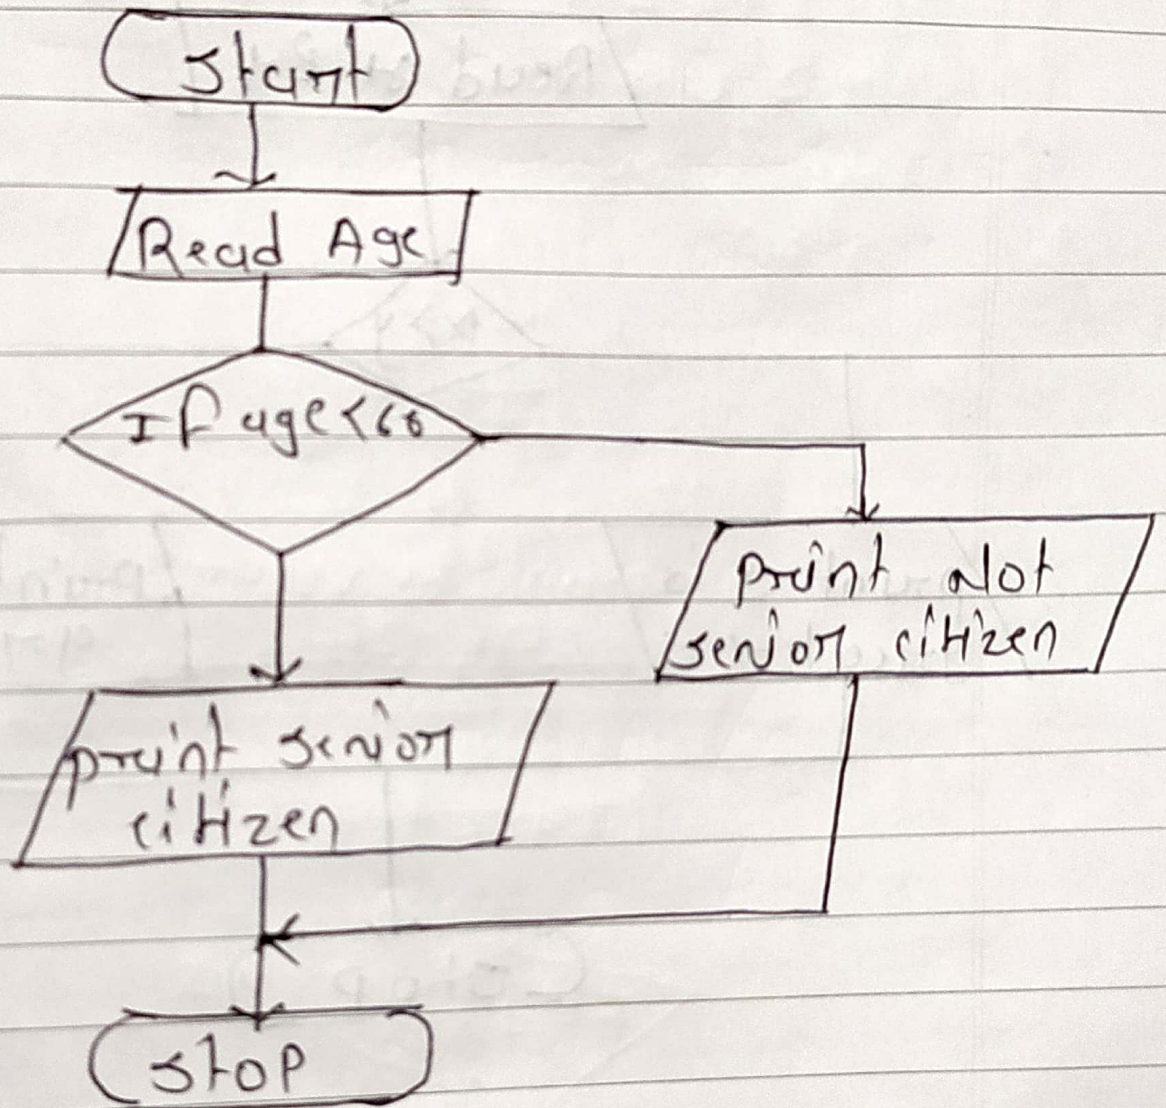 Start
Read Age
If age < 60
print Not
senior citizen
print senior
citizen
stop